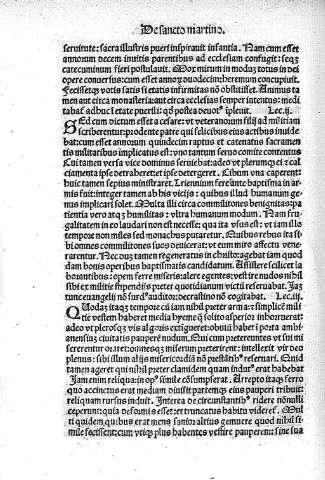 De sancto martino.
seruitute: sacra illustris pueri inspirauit infantia. Nam cum esset
annorum decem inuitis parentibus ad ecclesiam confugit: seqʒ
catecuminum fieri postulauit. Mox mirum in modum totus in dei
opere conuersus: cum esset annorum duodecim: heremum concupiuit.
Fecissetqʒ votis satis si etatis infirmitas nō obstitisset. Animus ta
men aut circa monasteria: aut circa ecclesias semper intentus: medi
tabat̄ adhuc ī etate puerili: qd̄ postea deuot⁹ ipleuit. Lec.ij.
SEd cum edictum esset a cesare: vt veteranorum filij ad militiam
scriberentur: prodente patre qui felicibus eius actibus inuide
bat: cum esset annorum quindecim raptus et catenatus sacramen
tis militaribus implicatus est: vno tantum seruo comite contentus
Cui tamen versa vice dominus seruiebat: adeo vt plerumqʒ et cal
ciamenta ipse detraheret: et ipse detergeret. Cibum vna caperent:
huic tamen sepius ministraret. Triennium fere ante baptisma in ar
mis fuit: integer tamen ab his vicijs: quibus illud humanum ge
nus implicari solet. Multa illi circa commilitones benignitas: pa
tientia vero atqʒ humilitas: vltra humanum modum. Nam fru
galitatem in eo laudari non est necesse: qua ita vsus est: vt iam illo
tempore non miles sed monachus putaretur. Quibus rebus ita si
bi omnes commilitones suos deuicerat: vt eum miro affectu vene
rarentur. Nec duʒ tamen regeneratus in christo: agebat iam quod
dam bonis operibus baptismatis candidatum. Assistere scilicet la
borantibus: opem ferre miseris: alere egentes: vestire nudos nihil
sibi ex militie stipendijs preter quotidianum victū reseruabat. Jaʒ
tunc euangelij nō surd⁹ auditor: de crastino nō cogitabat. Lec.iij.
QUodaʒ itaqʒ tempore cū iam nihil preter arma: et simplicē mili
tie vestem haberet media hyeme q̄ solito asperior inhorruerat:
adeo vt plerosqʒ vis algoris extigueret: obuiū habet ī porta ambi
anensiuʒ ciuitatis pauperē nudum. Qui cum pretereuntes vt sui mi
sererentur oraret: omnesqʒ miserum preterirent: intellexit vir deo
plenus: sibi illum alijs misericordiā nō prestātib⁹ reseruari. Quid
tamen ageret qui nihil preter clamidem quam indut⁹ erat habebat
Jam enim reliqua in op⁹ simile cōsumpserat. Arrepto itaqʒ ferro
quo accinctus erat mediam diuisit partemqʒ eius pauperi tribuit:
reliquam rursus induit. Interea de circunstantib⁹ ridere nōnulli
ceperunt: quia deformis esset: et truncatus habitu videret̄. Mul
ti quidem quibus erat mens sanior altius gemuere quod nihil si
mile fecissent: cum vtiqʒ plus habentes vestire pauperem: sine sua